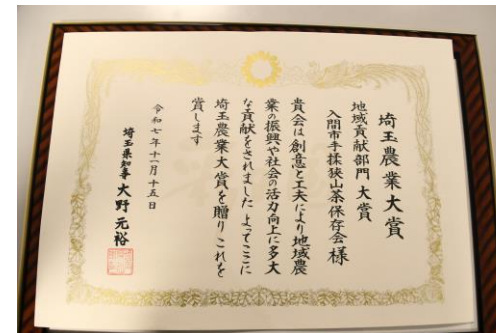 埼玉農業大賞
地域貢献部門 大賞
入間市手揉狭山茶保存会様
貴会は創意と工夫により地域農
業の振興や社会の活力向上に多大
な貢献をされました よってここに
埼玉農業大賞を贈り これを
賞します
令和七年十一月十五日
埼玉県知事 大野元裕